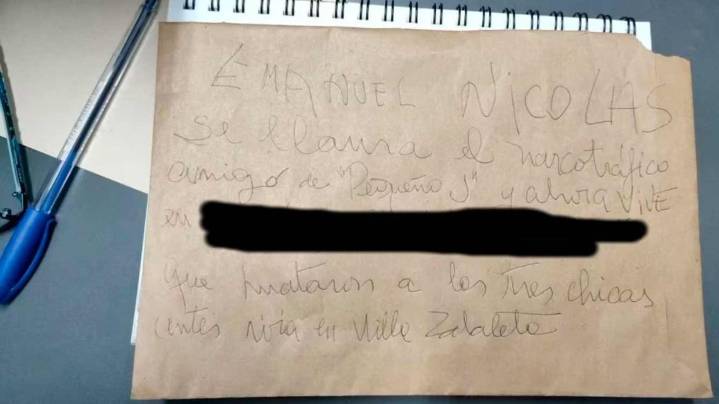 EMANUEL NICOLAS
se llama el narcotráfico
amigo de "Pequeño J" y ahora ViVE
en
que mataron a las tres chicas
antes vivia en Villa Zabaleta